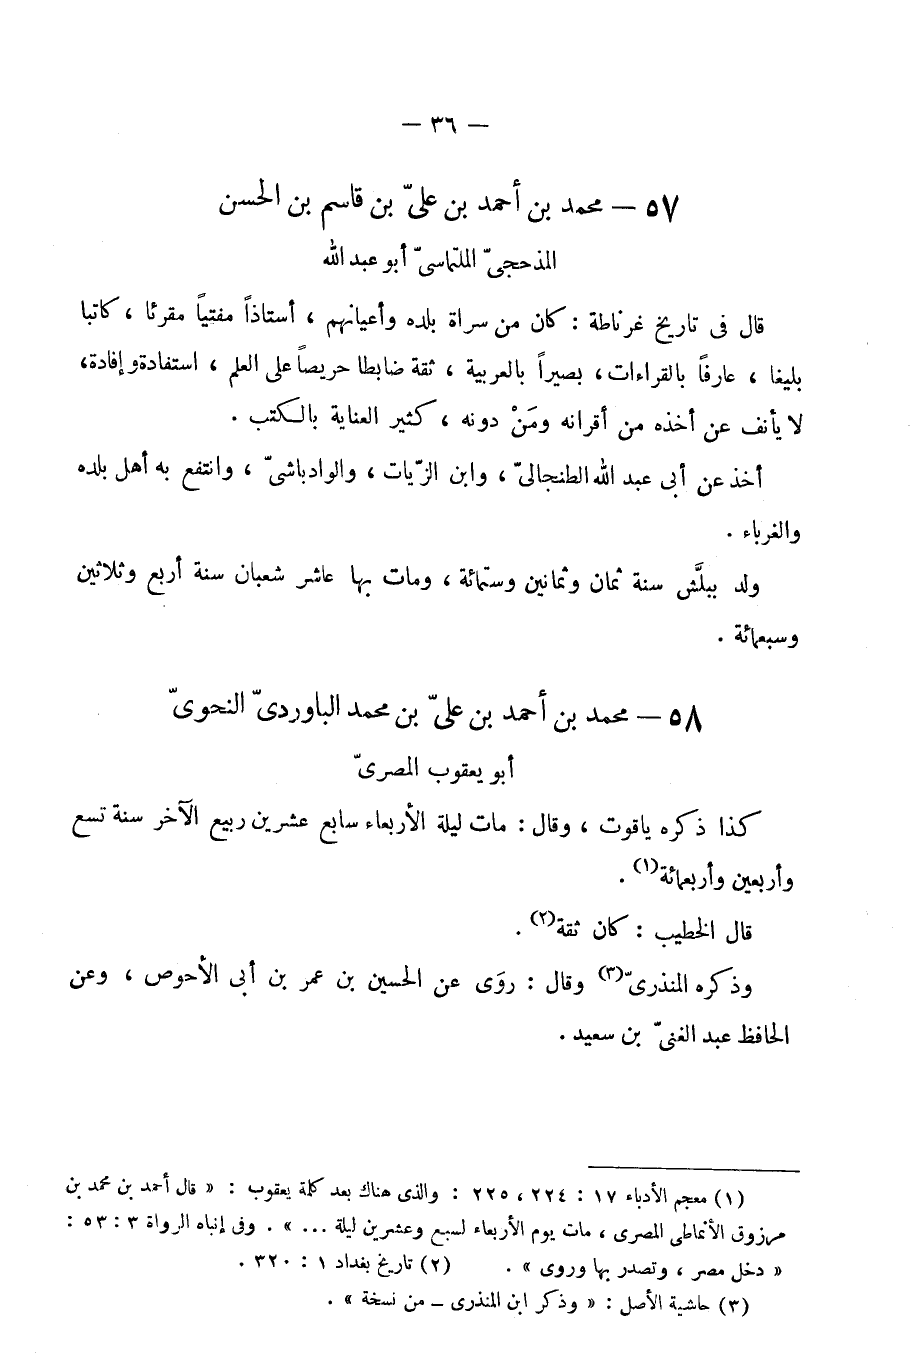 — ٣٦ —
٥٧ — محمد بن أحمد بن علىّ بن قاسم بن الحسن
المذحجىّ الملتماسىّ أبو عبد الله
قال فى تاريخ غرناطة : كان من سراة بلده وأعيانهم ، أستاذاً مفتياً مقرئا ، كاتبا
بليغا ، عارفاً بالقراءات، بصيراً بالعربية ، ثقة ضابطا حريصاً على العلم ، استفادة وإفادة،
لا يأنف عن أخذه من أقرانه ومَنْ دونه ، كثير العناية بالكتب .
أخذ عن أبى عبد الله الطنجالىّ ، وابن الزّيات ، والوادباشىّ ، وانتفع به أهل بلده
والغرباء .
ولد ببلَّش سنة ثمان وثمانين وستمائة ، ومات بها عاشر شعبان سنة أربع وثلاثين
وسبعمائة .
٥٨ — محمد بن أحمد بن علىّ بن محمد الباوردىّ النحوىّ
أبو يعقوب المصرىّ
كذا ذكره ياقوت ، وقال : مات ليلة الأربعاء سابع عشرين ربيع الآخر سنة تسع
وأربعين وأربعمائة(١) .
قال الخطيب : كان ثقة(٢) .
وذكره المنذرىّ(٣) وقال : روَى عن الحسين بن عمر بن أبى الأحوص ، وعن
الحافظ عبد الغنىّ بن سعيد .
(١) معجم الأدباء ١٧ : ٢٢٤ ، ٢٢٥ : والذى هناك بعد كلمة يعقوب : « قال أحمد بن محمد بن
مرزوق الأنماطى المصرى ، مات يوم الأربعاء لسبع وعشرين ليلة ... » . وفى إنباه الرواة ٣ : ٥٣ :
« دخل مصر ، وتصدر بها وروى » . (٢) تاريخ بغداد ١ : ٣٢٠ .
(٣) حاشية الأصل : « وذكر ابن المنذرى – من نسخة » .